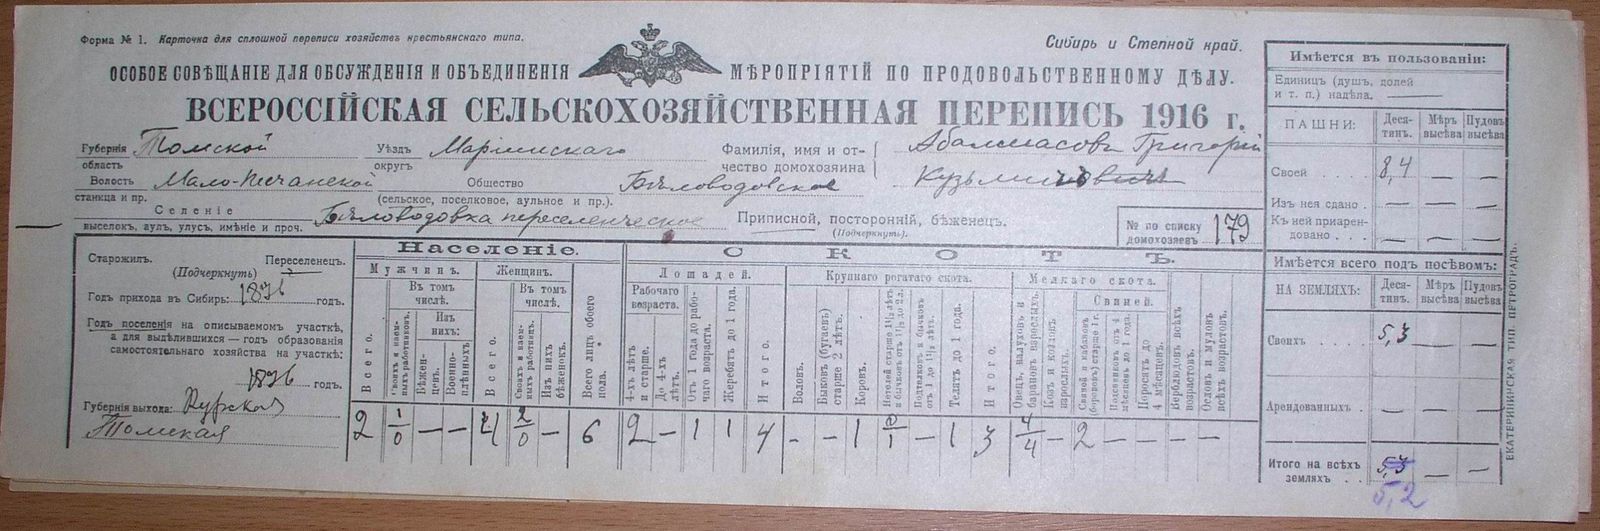 Форма № 1. Карточка для сплошной переписи хозяйствъ крестьянскаго типа.
Сибирь и Степной край.
ОСОБОЕ СОВѢЩАНІЕ ДЛЯ ОБСУЖДЕНІЯ И ОБЪЕДИНЕНІЯ МѢРОПРІЯТІЙ ПО ПРОДОВОЛЬСТВЕННОМУ ДѢЛУ.
ВСЕРОССІЙСКАЯ СЕЛЬСКОХОЗЯЙСТВЕННАЯ ПЕРЕПИСЬ 1916 г.
Губернія Томской Уѣздъ Маріинскаго Фамилія, имя и от- Абалмасовъ Григорій
область округъ чество домохозяина
Волость Мало-Песчанской Общество Бѣловодовское Кузьмичовичъ
станица и пр. (сельское, поселковое, аульное и пр.).
Селеніе Бѣловодовка переселенческое Приписной, посторонній, бѣженецъ.
выселокъ, аулъ, улусъ, имѣніе и проч. (Подчеркнуть).
№ по списку 179
домохозяевъ
Старожилъ. Переселенецъ.
(Подчеркнуть)
Годъ прихода въ Сибирь: 1896 годъ.
Годъ поселенія на описываемомъ участкѣ,
а для выдѣлившихся — годъ образованія
самостоятельнаго хозяйства на участкѣ:
1896 годъ.
Губернія выхода: Курская
Томская
Населеніе.
Мужчинъ. Женщинъ.
Всего.
Въ томъ числѣ.
Своихъ и наемныхъ работниковъ.
Изъ нихъ:
Бѣженцевъ.
Военно-плѣнныхъ
Всего.
Въ томъ числѣ.
Своихъ и наемныхъ работницъ.
Изъ нихъ бѣженокъ.
Всего лицъ обоего пола.
СКОТЪ.
Лошадей.
Рабочаго возраста.
4-хъ лѣтъ и старше.
До 4-хъ лѣтъ.
Отъ 1 года до рабочаго возраста.
Жеребятъ до 1 года.
Итого.
Крупнаго рогатаго скота.
Воловъ.
Быковъ (бугаевъ) старше 2 лѣтъ.
Коровъ.
Нетелей старше 1½ лѣтъ и бычковъ отъ 1½ до 2 л.
Подтелковъ и бычковъ отъ 1 до 1½ лѣтъ.
Телятъ до 1 года.
Итого.
Мелкаго скота.
Овецъ, валуховъ и барановъ взрослыхъ.
Козъ и козловъ взрослыхъ.
Свиней.
Свиней и кабановъ (борововъ) старше 1 г.
Подсвинковъ отъ 4 мѣсяцевъ до 1 года.
Поросятъ до 4 мѣсяцевъ.
Верблюдовъ всѣхъ возрастовъ.
Ословъ и муловъ всѣхъ возрастовъ.
2 1/0 — — 4 2/0 — 6 2 — 1 1 4 - - 1 — 1 3 4/4 — 2 — — — —
Имѣется въ пользованіи:
Единицъ (душъ, долей
и т. п.) надѣла.
ПАШНИ: Десятинъ. Мѣръ высѣва Пудовъ высѣва
Своей 8,4 — —
Изъ нея сдано — — —
Къ ней приарен-
довано — — —
Имѣется всего подъ посѣвомъ:
НА ЗЕМЛЯХЪ: Десятинъ. Мѣръ высѣва Пудовъ высѣва
Своихъ 5,3 — —
Арендованныхъ — — —
Итого на всѣхъ 5,3 — —
земляхъ
5,2
ЕКАТЕРИНИНСКАЯ ТИП. ПЕТРОГРАДЪ.